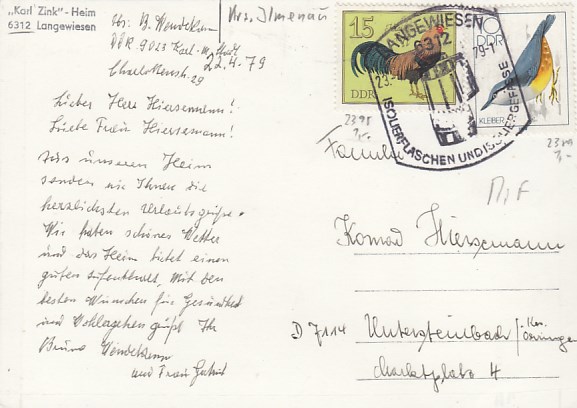 „Karl Zink"-Heim
6312 Langewiesen
Krs. Ilmenau
Abs: B. Wendekamm
DDR 9013 Karl-M-Stadt
Charlottenstr. 29
22.4.79
Lieber Herr Hiersemann!
Liebe Frau Hiersemann!
Aus unserem Heim
senden wir Ihnen die
herzlichsten Urlaubsgrüße.
Wir haben schönes Wetter
und das Heim bietet einen
guten Aufenthalt. Mit den
besten Wünschen für Gesundheit
und Wohlergehen grüßt Ihr
Bruno Wendekamm
und Frau
15
DDR
10
DDR
KLEIBER
LANGEWIESEN
6312
ISOLIERFLASCHEN UND ISOLIERGEFÄSSE
2395
MiF
Familie
Konrad Hiersemann
D 7114 Untersteinbach/ Krs. Öhringen
Marktplatz 4